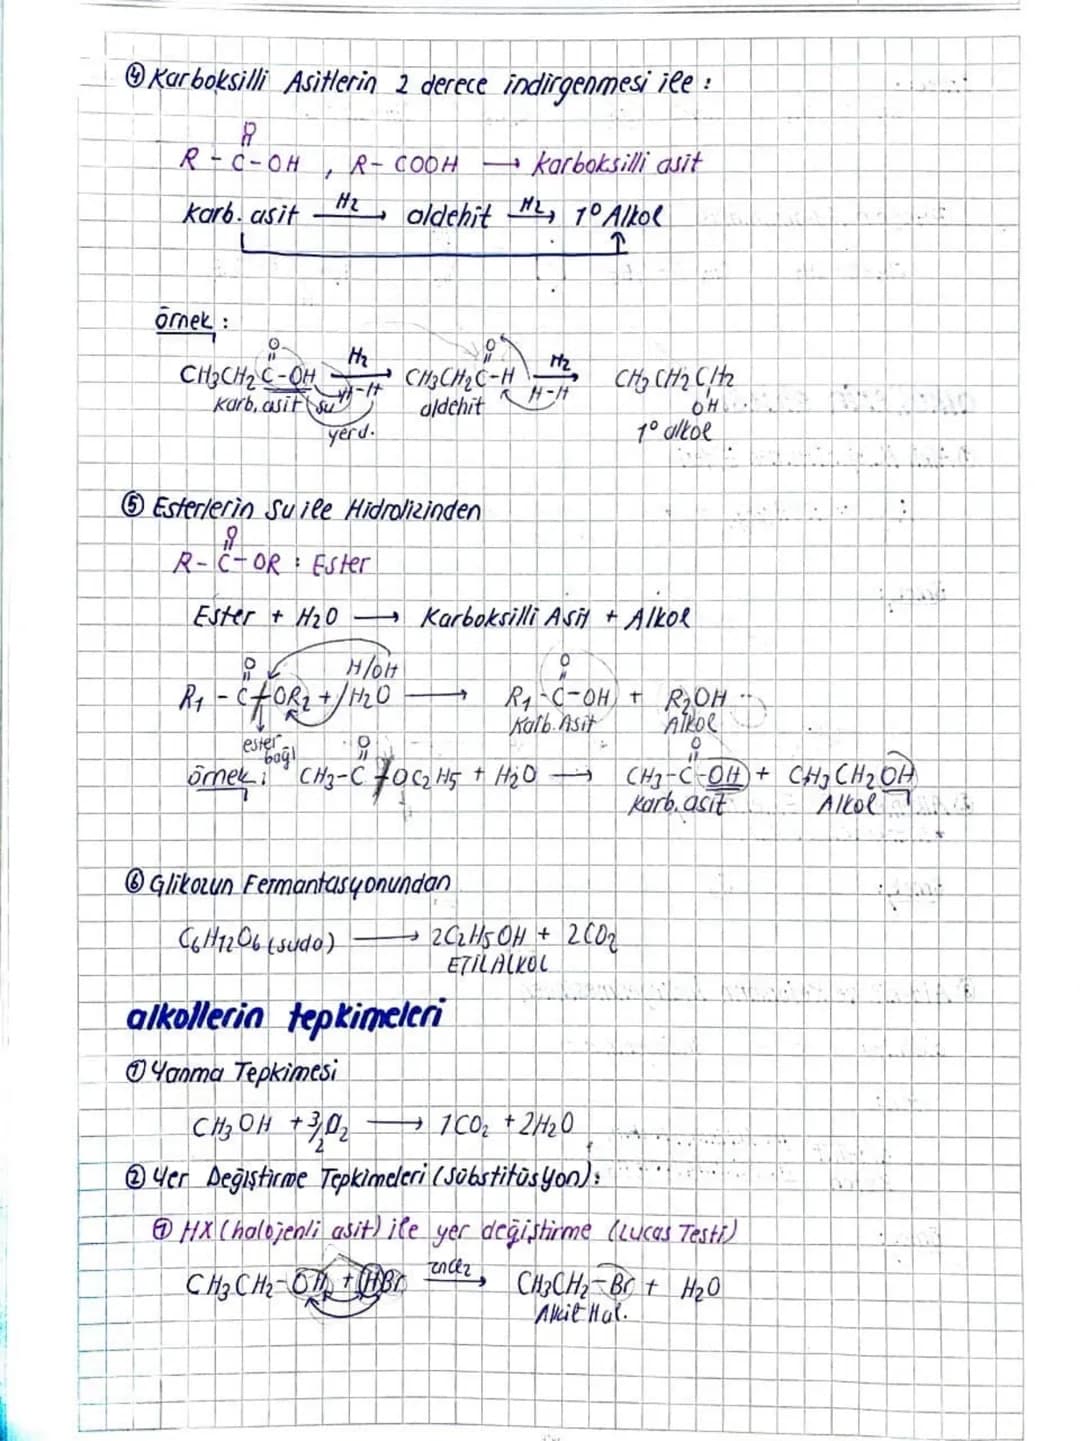 ④ Karboksilli Asitlerin 2 derece indirgenmesi ile :
O
R - C - OH , R - COOH → karboksilli asit
karb. asit H2→ aldehit H2→ 1° Alkol
örnek :
O H2 O H2
CH3CH2C-OH → CH3CH2C-H → CH3CH2CH2
karb. asit su H-H aldehit H-H OH
yerd. 1° alkol
⑤ Esterlerin Su ile Hidrolizinden
O
R - C - OR : Ester
Ester + H2O → Karboksilli Asit + Alkol
O H/OH O
R1 - C/OR2 + H2O → R1-C-OH + R2OH
Karb. Asit Alkol
ester bağı
örnek : CH3-C/OC2H5 + H2O → CH3-C-OH + CH3CH2OH
O O
karb. asit Alkol
⑥ Glikozun Fermantasyonundan
C6H12O6 (suda) → 2C2H5OH + 2CO2
ETİLALKOL
alkollerin tepkimeleri
① Yanma Tepkimesi
CH3OH + 3/2O2 → 1CO2 + 2H2O
② Yer Değiştirme Tepkimeleri (Sübstitüsyon) :
① HX (halojenli asit) ile yer değiştirme (Lucas Testi)
CH3CH2-OH + HBr ZnCl2→ CH3CH2-Br + H2O
Alkil Hal.